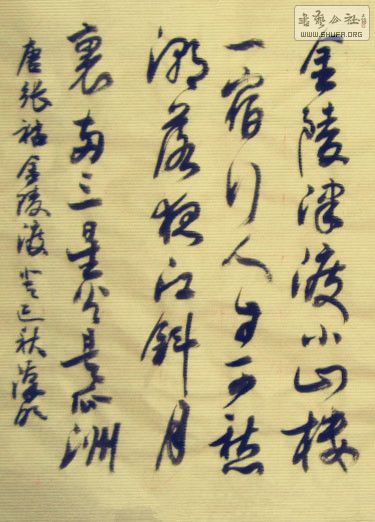 書藝公社
WWW.SHUFA.ORG
金陵津渡小山楼
一宿行人自可愁
潮落夜江斜月
裏两三星火是瓜洲
唐张祜金陵渡癸巳秋